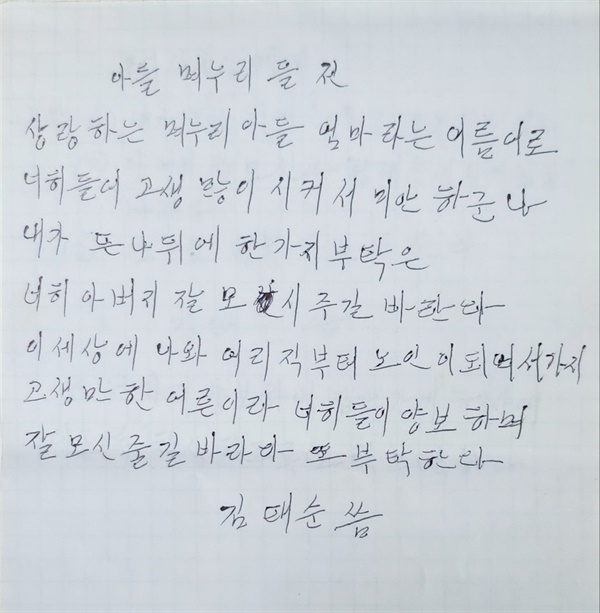 아들 며누리 들 전
상랑하는 며누리 아들 얼마라는 이름이로
너히들이 고생 많이 시커서 미안 하군나
내가 뜬나뒤에 한가지부탁은
너히 아버지 잘 모시주길 바란다
이세상에 나와 어리직부터 노인이되며서가지
고생만한 어른이라 너히들이 양보하며
잘모신줄길바라마 또 부탁한다
김태순 씀